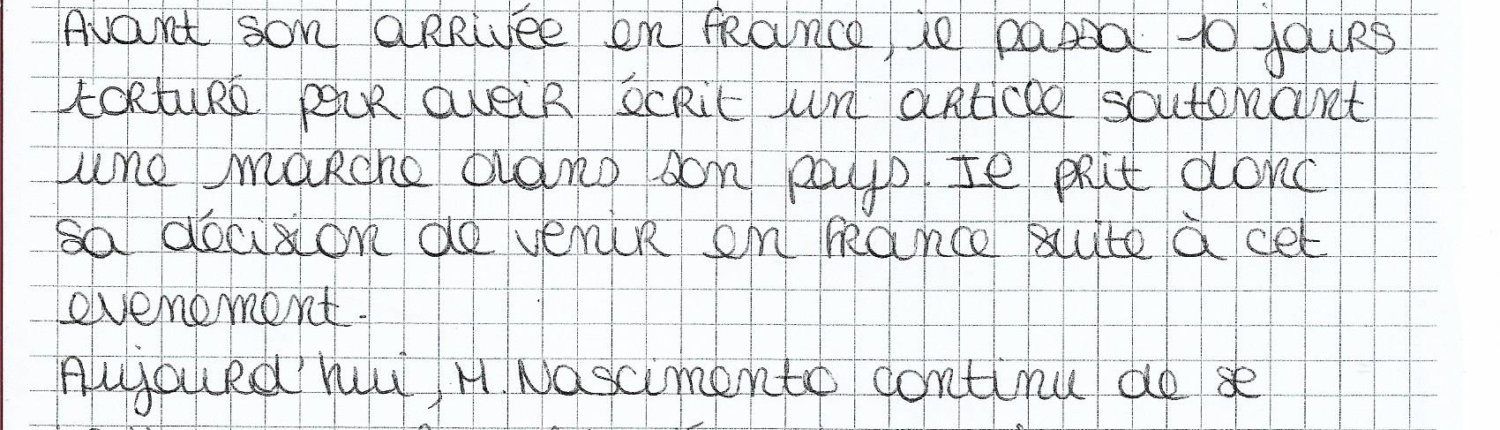 Avant son arrivée en france, il passa 10 jours
torturé pour avoir écrit un article soutenant
une marche dans son pays. Il prit donc
sa décision de venir en france suite à cet
evenement.
Aujourd'hui, M. Nascimento continu de se